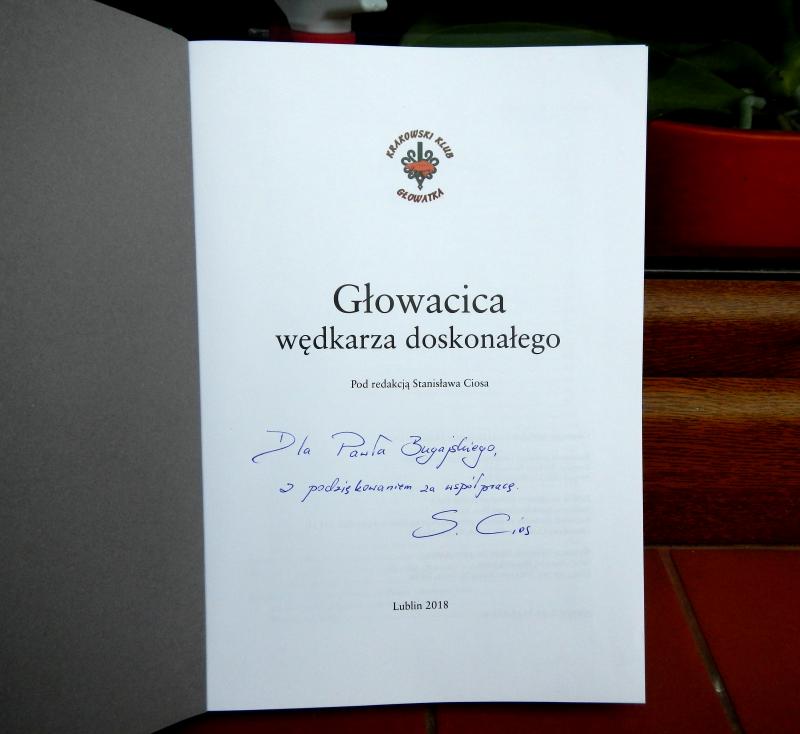 KRAKOWSKI KLUB
GŁOWATKA
Głowacica
wędkarza doskonałego
Pod redakcją Stanisława Ciosa
Dla Pawła Bugajskiego,
z podziękowaniem za współpracę.
S. Cios
Lublin 2018